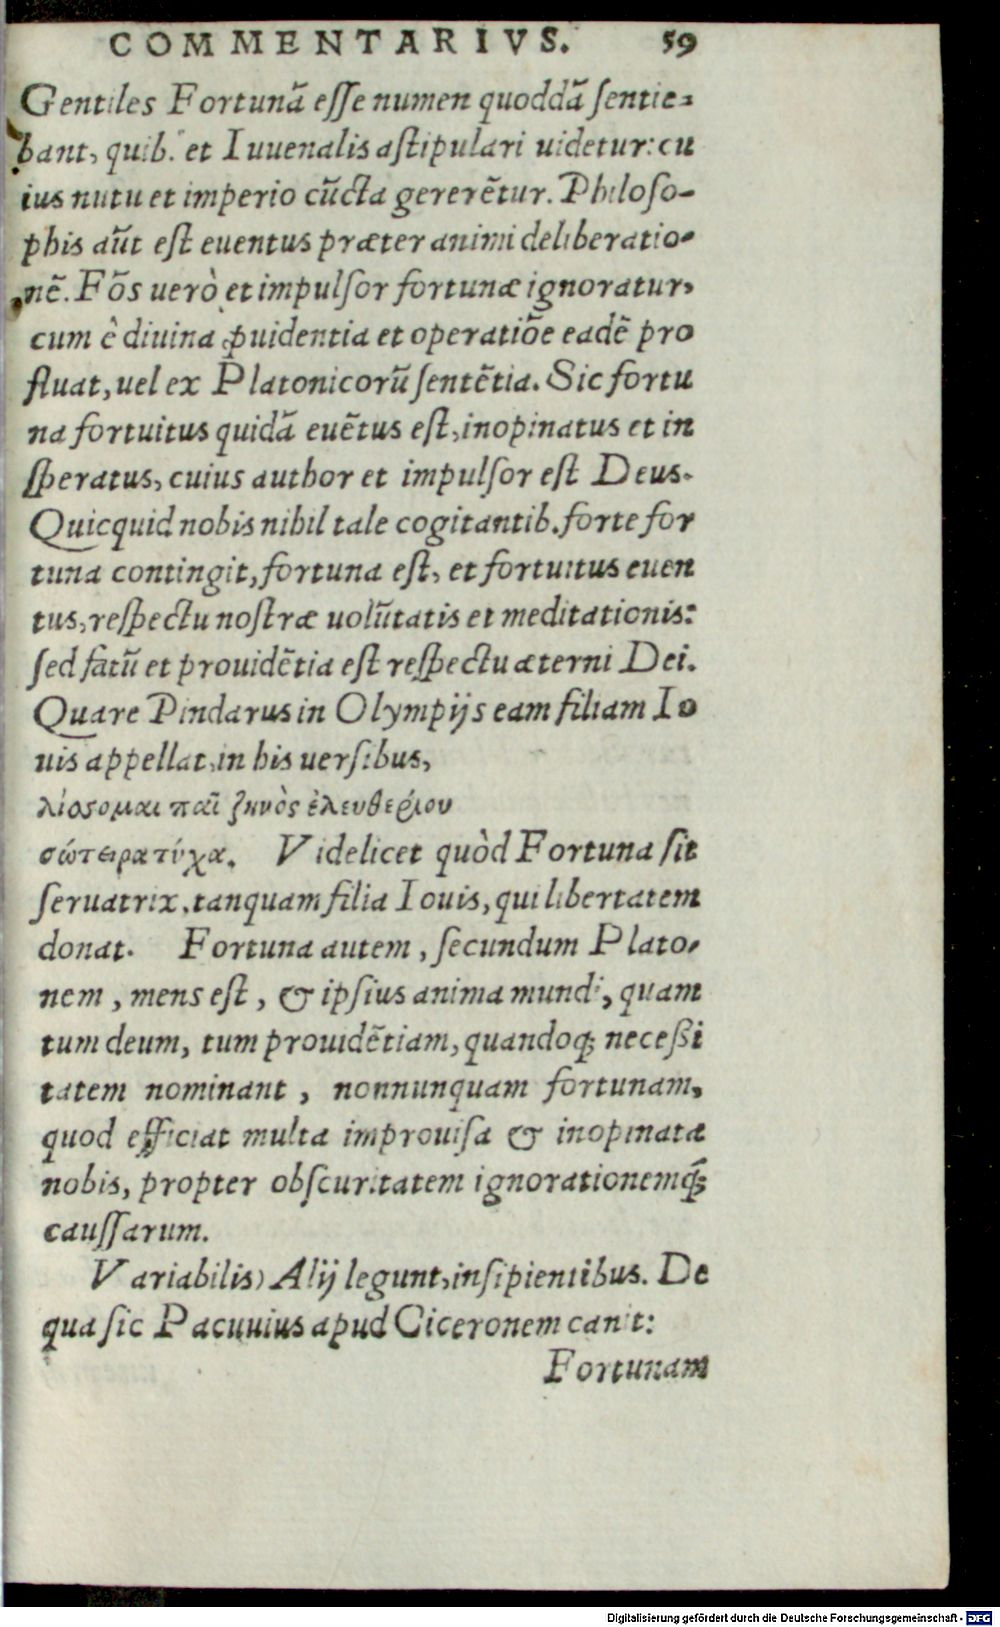 COMMENTARIVS. 59
Gentiles Fortunã esse numen quoddã sentie-
bant, quib. et Iuuenalis astipulari uidetur: cu
ius nutu et imperio cũcta gererẽtur. Philoso-
phis aũt est euentus præter animi deliberatio-
nẽ. Fõs uerò et impulsor fortunæ ignoratur,
cum è diuina ꝓuidentia et operatiõe eadẽ pro
fluat, uel ex Platonicorũ sentẽtia. Sic fortu
na fortuitus quidã euẽtus est, inopinatus et in
speratus, cuius author et impulsor est Deus.
Quicquid nobis nihil tale cogitantib. forte for
tuna contingit, fortuna est, et fortuitus euen
tus, respectu nostræ uolũtatis et meditationis:
sed fatũ et prouidẽtia est respectu æterni Dei.
Quare Pindarus in Olympijs eam filiam Io
uis appellat, in his uersibus,
λίσσομαι παῖ ζηνὸς ἐλευθερίου
σώτειρα τύχα. Videlicet quòd Fortuna sit
seruatrix, tanquam filia Iouis, qui libertatem
donat. Fortuna autem, secundum Plato-
nem, mens est, & ipsius anima mundi, quam
tum deum, tum prouidẽtiam, quandoq; neceßi
tatem nominant, nonnunquam fortunam,
quod efficiat multa improuisa & inopinata
nobis, propter obscuritatem ignorationemq́;
caussarum.
Variabilis) Alij legunt, insipientibus. De
qua sic Pacuuius apud Ciceronem canit:
Fortunam
Digitalisierung gefördert durch die Deutsche Forschungsgemeinschaft - DFG